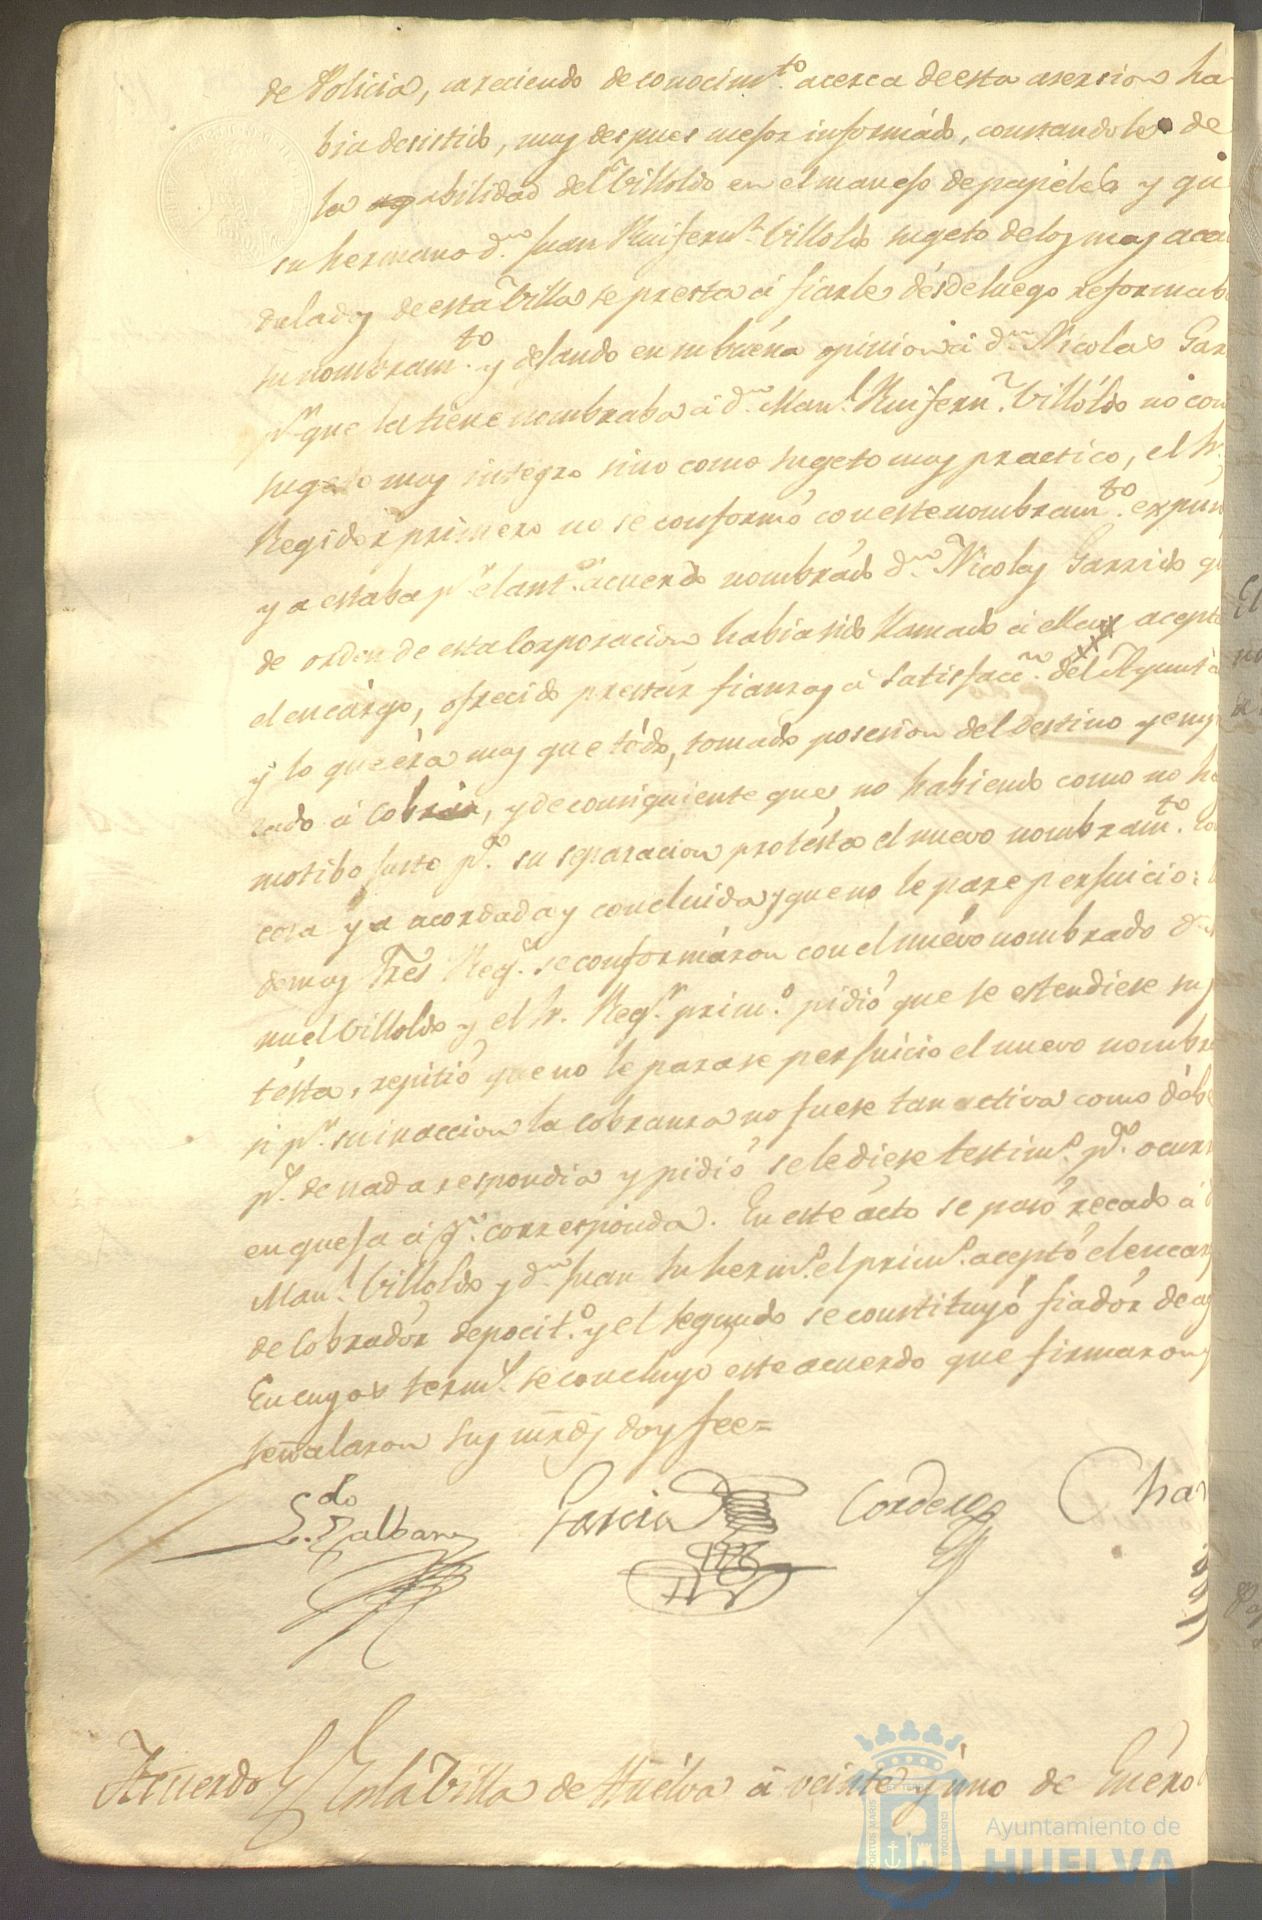 de Policia, careciendo de conocim.to acerca de esta asersion ha
bia desistido, mas despues mejor informádo, constandole de
la abilidad del Villoldo en el manejo de papeles y qu
su hermano d.n Juan Ruifern.z Villoldo sugeto de los mas aca
dalados de esta Villa se presta á fiarle désdeluego reformab
su nombram.to y dejando en su buéna opinion á d.n Nicolas Gar
p.r que la tiene nombraba á d.n Man.l Ruifern.z Villóldo no com
sugeto mas integro sino como sugeto mas practico, el Sr.
Regidor primero no se conformó con este nombram.to expun
ya estaba p.r el ant.or acuerdo nombrádo d.n Nicolas Garrido q
de orden de esta Corporacion habia sido llamado á ella acept
el encárgo, ofrecido prestár fianzas á satisfacc.n del Ayunt
y lo que éra mas que tódo, tomado posesion del Destino y emp
zado á Cobrar, y de consiguiente que no habiendo como no ha
motibo justo p.a su separacion protésta el nuevo nombram.to
cosa ya acordada y concluida y que no le pare perjuicio:
demas Sres Reg.s se conformáron con el nuévo nombrado d.n
nuel Villoldo y el Sr. Reg.r prim.o pidió que se estendiese su p
tésta, repitió que no le parase perjuicio el nuevo nombra
si p.r su inaccion la Cobranza no fuese tan activa como débe
p.s de nada respondia y pidió se le diese testim.o p.a ocurr
en queja á q.n corresponda. En este ácto se pasó recado á
Man.l Villoldo y d.n Juan su herm.o el prim.o aceptó el encar
de Cobradór deposit.o y el segundo se constituyó fiadór de
En cuyos term.s se concluyó este acuerdo que firmaron
señalaron sus mrds doy fee=
L.do Zalban Garcia Cordero Cha
Acuerdo En la Villa de Huélva á veinte y úno de Enéro
Ayuntamiento de
HUELVA
PORTUS MARIS
CUSTODIA